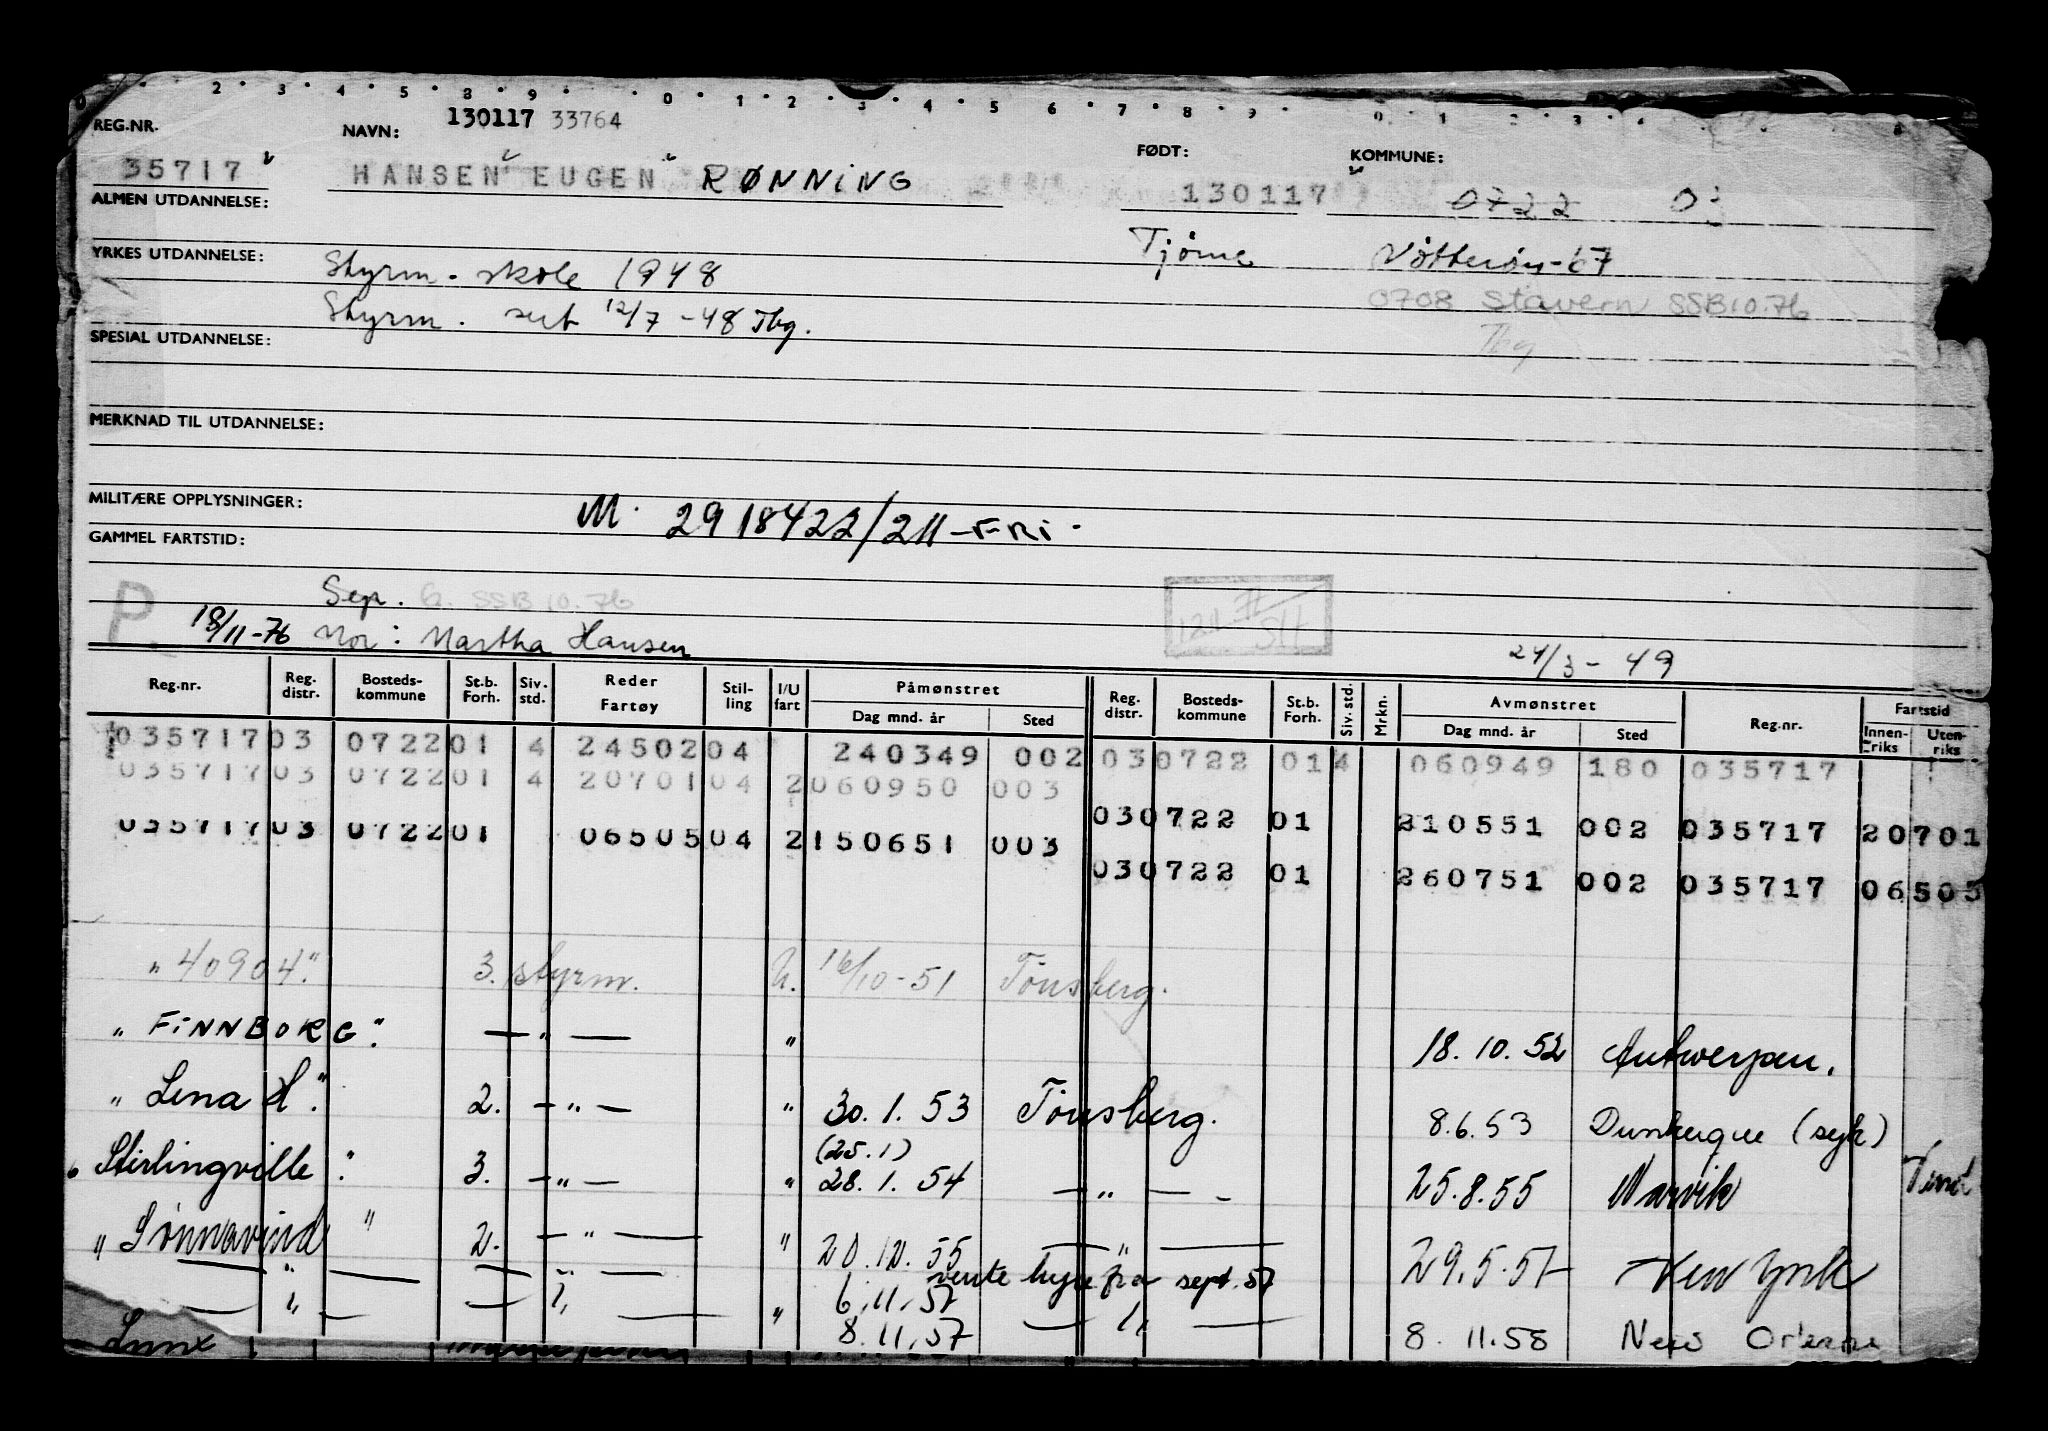 REG.NR. NAVN: 130117 33764 FØDT: KOMMUNE:
35717 HANSEN EUGEN RØNNING 130117 0722
ALMEN UTDANNELSE:
Tjøme Nøtterøy-67
YRKES UTDANNELSE: Styrm. skole 1948
0708 Stavern SSB10.76
Styrm. sert 12/7-48 Tbg. Tbg
SPESIAL UTDANNELSE:
MERKNAD TIL UTDANNELSE:
MILITÆRE OPPLYSNINGER: M. 2918422/211-FRi.
GAMMEL FARTSTID:
P. Sep. G. SSB 10.76
18/11-76 Mor: Martha Hansen 24/3-49
Reg.nr. Reg. distr. Bosteds-kommune St.b. Forh. Siv. std. Reder Fartøy Stil-ling I/U fart Påmønstret Dag mnd. år Sted Reg. distr. Bosteds-kommune St.b. Forh. Siv. std. Mrkn. Avmønstret Dag mnd. år Sted Reg.nr. Fartstid Innen-riks Uten-riks
035717 03 0722 01 4 24502 04 240349 002 03 0722 01 4 060949 180 035717
035717 03 0722 01 4 20701 04 2 060950 003
03 0722 01 210551 002 035717 20701
035717 03 0722 01 06505 04 2 150651 003
03 0722 01 260751 002 035717 06505
"40904" 3. styrm. U. 16/10-51 Tønsberg.
"FINNBORG" — " — " 18.10.52 Antwerpen.
"Lena H." 2. — " — " 30.1.53 Tønsberg. 8.6.53 Dunkerque (syk)
(25.1)
"Stirlingville" 3. — " — " 28.1.54 — " — 25.8.55 Narvik
"Sønnavind" 2. — " — " 20.12.55 — " — 29.5.57 New York
— " — — " — vente hyre fra sept. 57
— " — — " — " 6.11.57 — " —
8.11.57 8.11.58 New Orleans